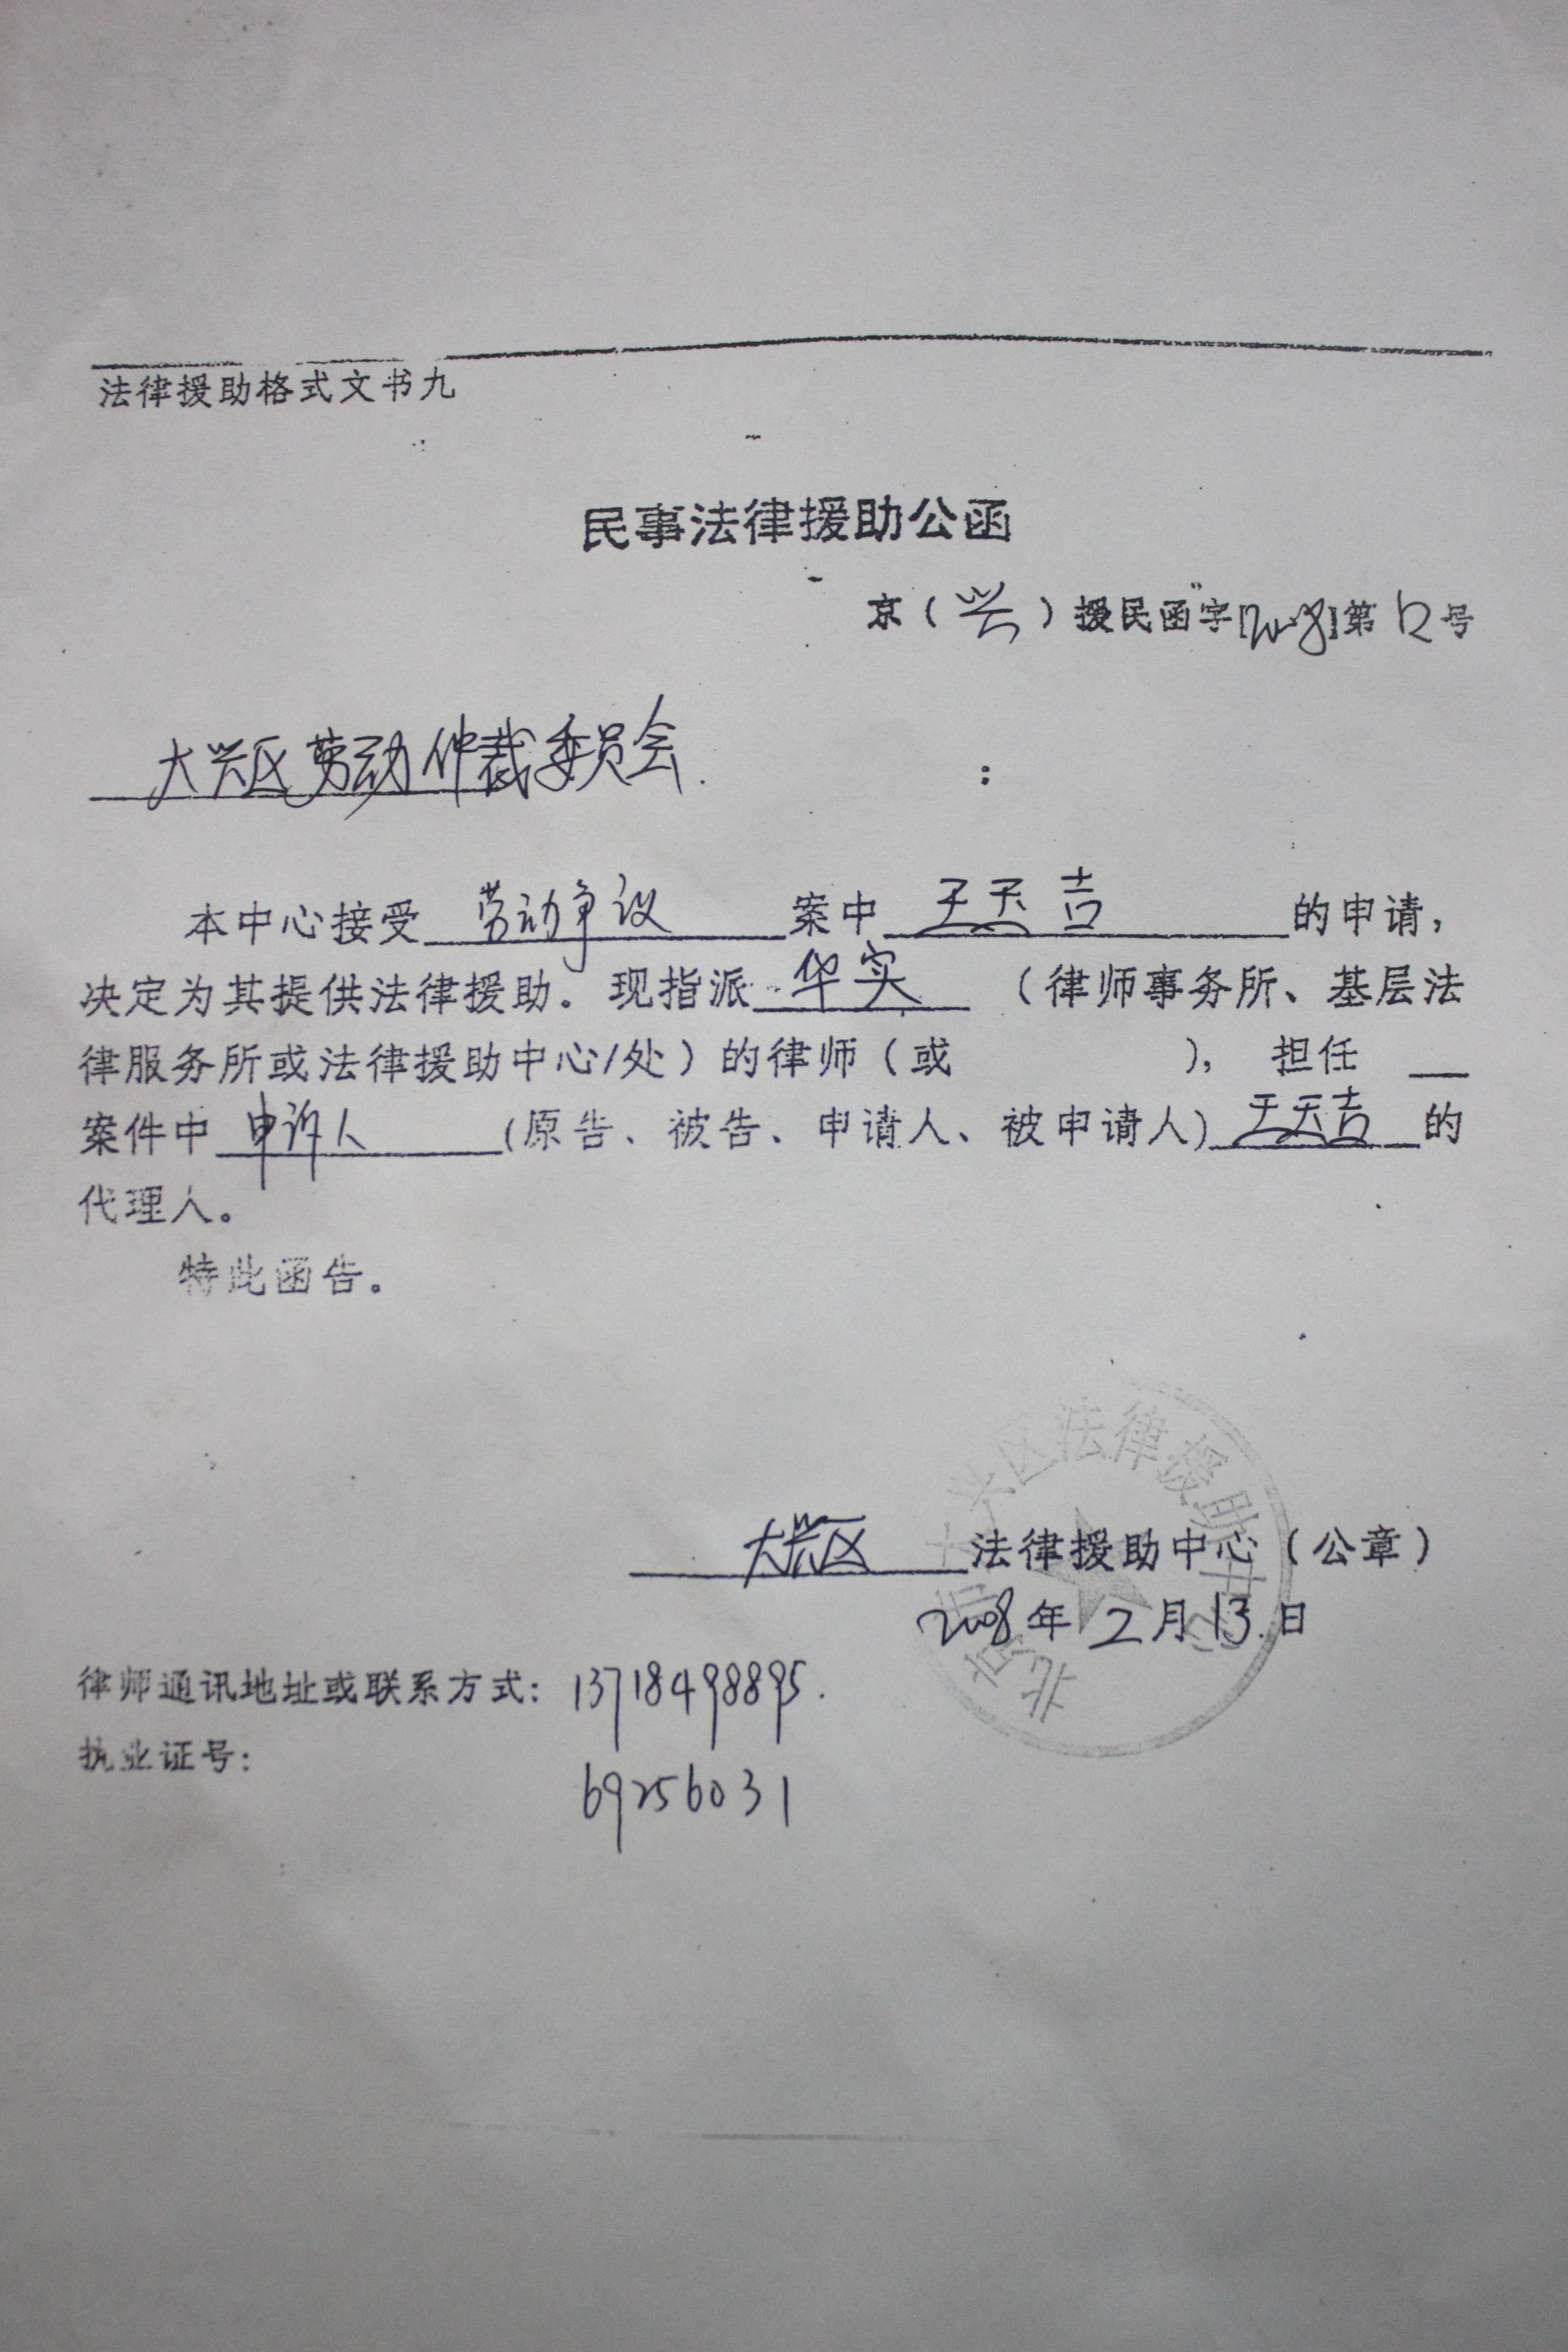 法律援助格式文书九
民事法律援助公函
京（兴）援民函字[2008]第12号
大兴区劳动仲裁委员会：
本中心接受 劳动争议 案中 王天吉 的申请，
决定为其提供法律援助。现指派 华实 （律师事务所、基层法
律服务所或法律援助中心/处）的律师（或 ）， 担任
案件中 申诉人 (原告、被告、申请人、被申请人) 王天吉 的
代理人。
特此函告。
北京市大兴区法律援助中心
大兴区 法律援助中心（公章）
2008年2月13日
律师通讯地址或联系方式：13718498895.
执业证号：
69256031